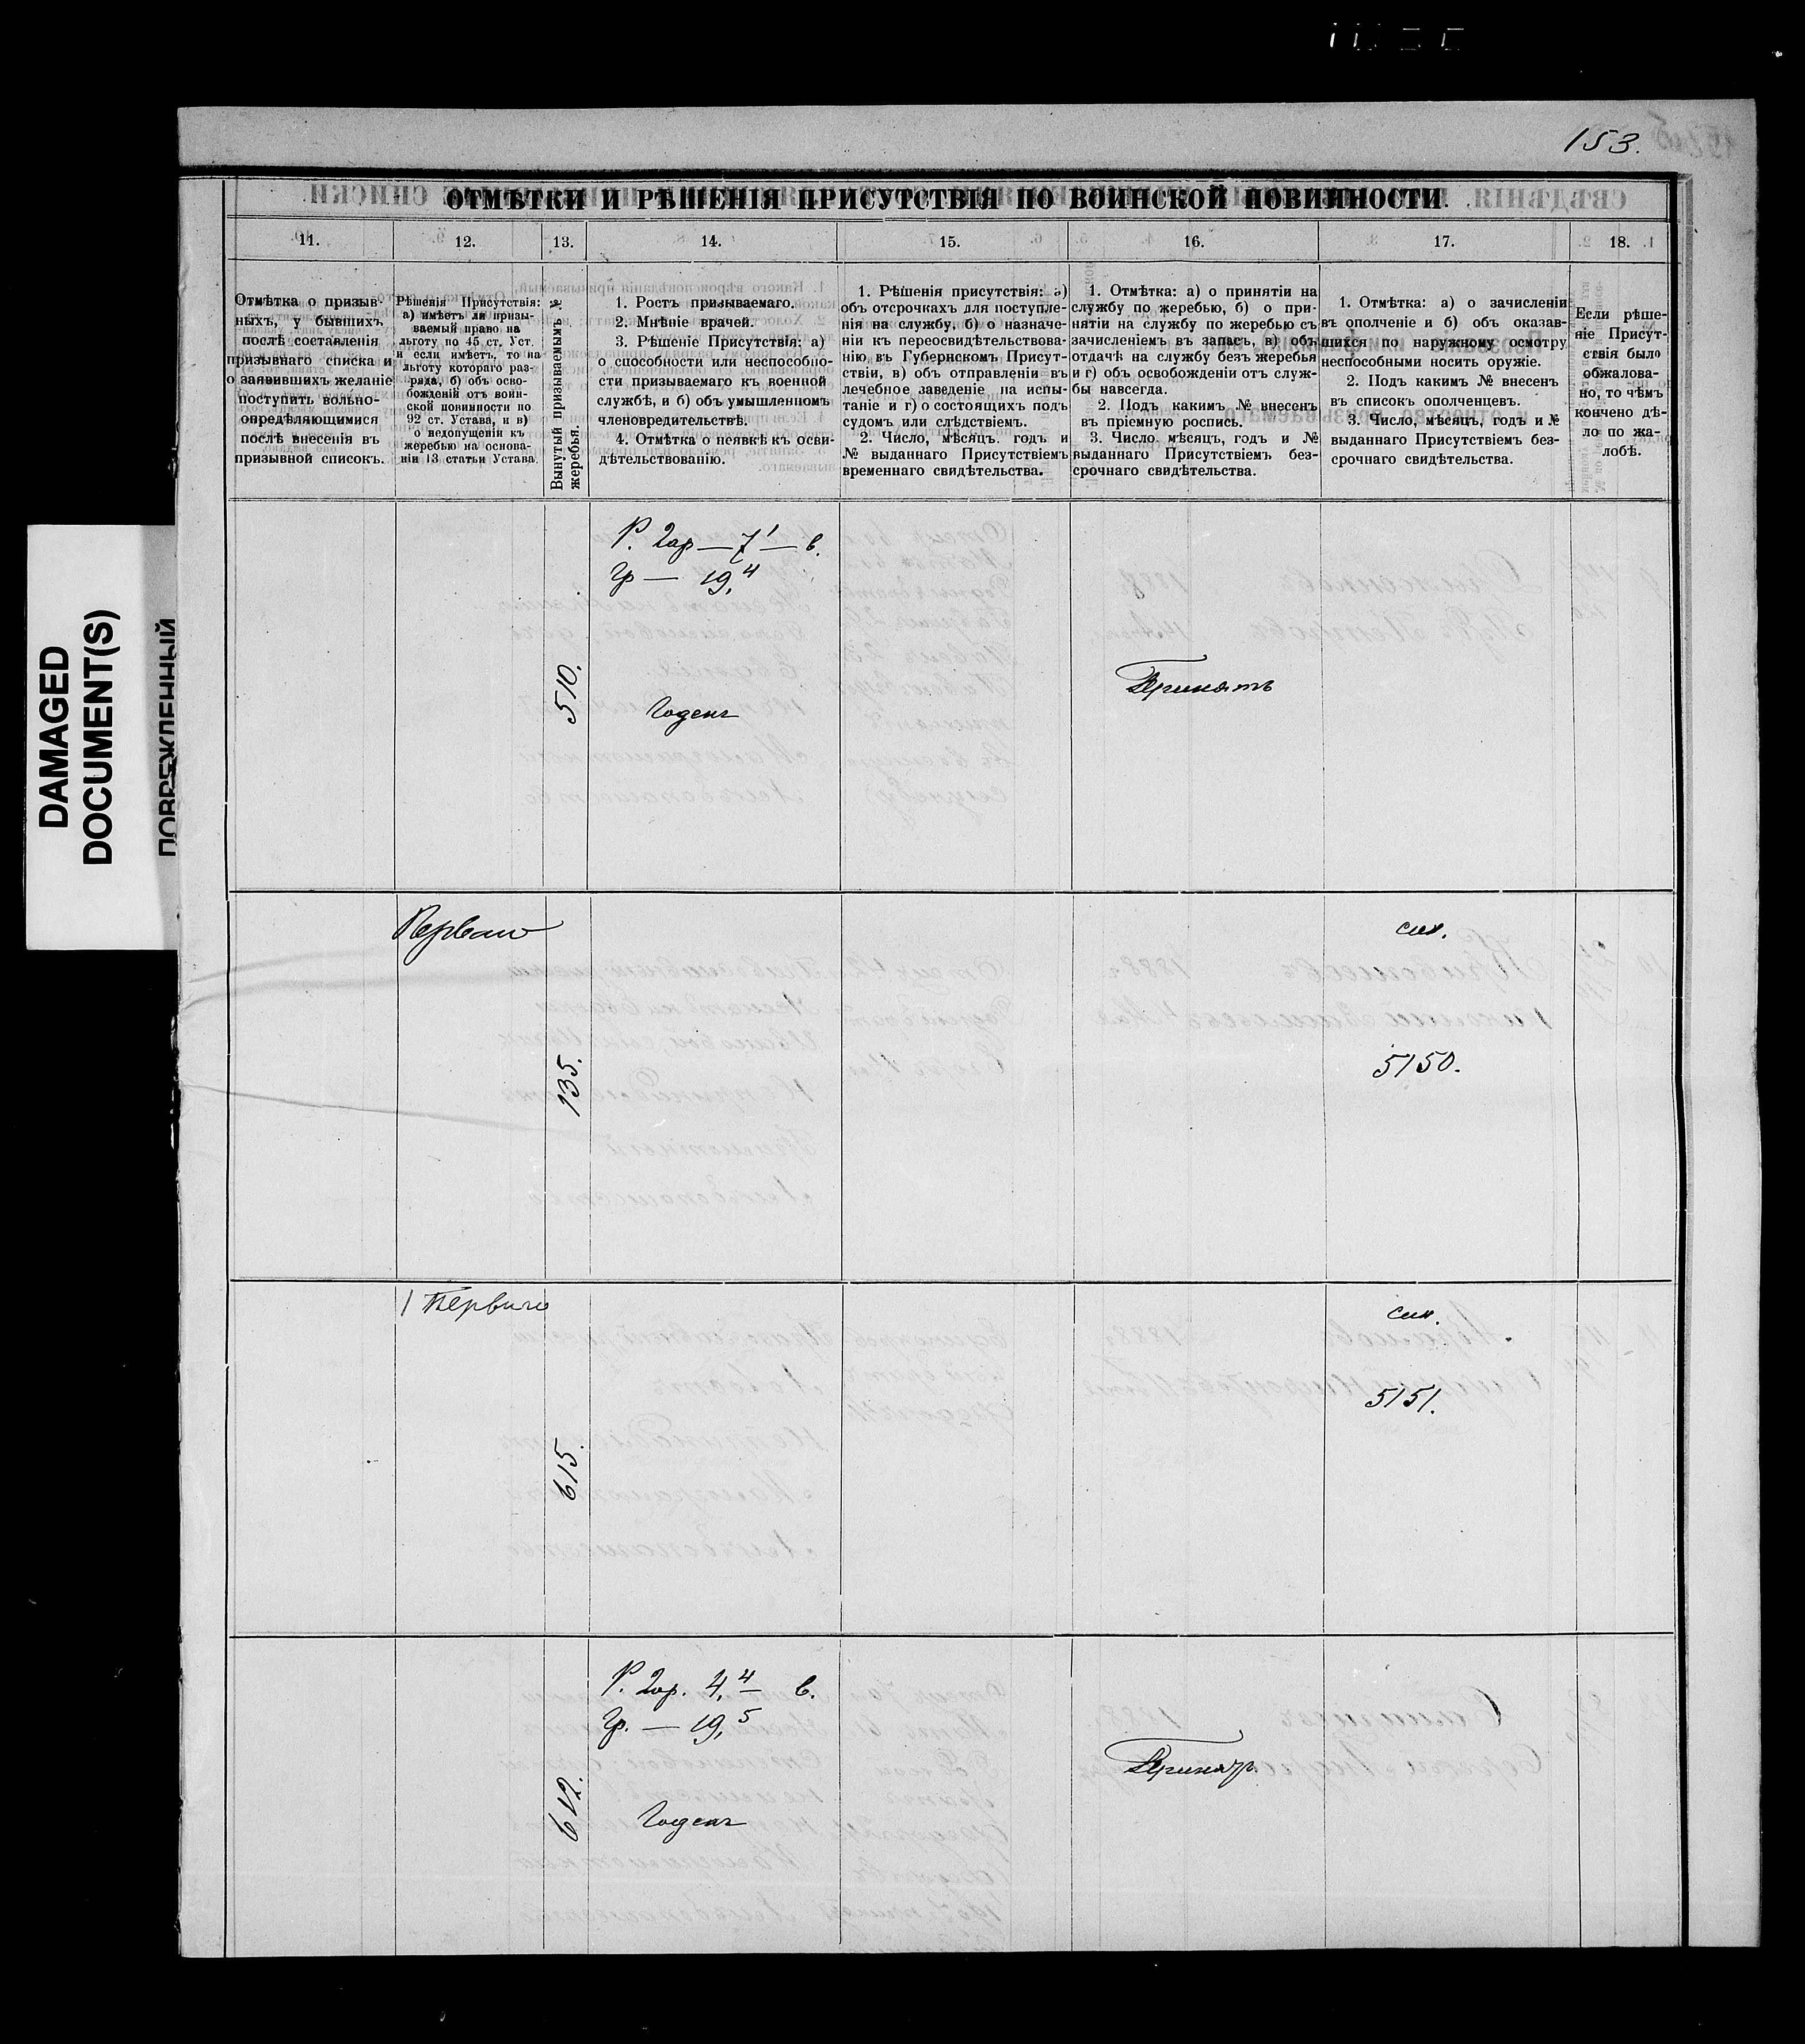 153.
ОТМѢТКИ И РѢШЕНІЯ ПРИСУТСТВІЯ ПО ВОИНСКОЙ ПОВИННОСТИ.
11.
12.
13.
14.
15.
16.
17.
18.
Отмѣтка о призыв-
ныхъ, у бывшихъ
послѣ составленія
призывнаго списка и
о заявившихъ желаніе
поступить вольно-
опредѣляющимися
послѣ внесенія въ
призывной списокъ.
Рѣшенія Присутствія:
а) имѣетъ ли призы-
ваемый право на
льготу по 45 ст. Уст.
и если имѣетъ, то на
льготу котораго раз-
ряда, б) объ осво-
божденій отъ воин-
ской повинности по
92 ст. Устава, и в)
о недопущеніи къ
жеребью на основа-
ніи 13 статьи Устава
Вынутый призываемымъ №
жеребья.
1. Ростъ призываемаго.
2. Мнѣніе врачей.
3. Рѣшеніе Присутствія: а)
о способности или неспособно-
сти призываемаго къ военной
службѣ, и б) объ умышленномъ
членовредительствѣ.
4. Отмѣтка о неявкѣ къ осви-
дѣтельствованію.
1. Рѣшенія присутствія: а)
объ отсрочкахъ для поступле-
нія на службу, б) о назначе-
ніи къ переосвидѣтельствова-
нію въ Губернскомъ Присут-
ствіи, в) объ отправленіи въ
лечебное заведеніе на испы-
таніе и г) о состоящихъ подъ
судомъ или слѣдствіемъ.
2. Число, мѣсяцъ. годъ и
№ выданнаго Присутствіемъ
временнаго свидѣтельства.
1. Отмѣтка: а) о принятіи на
службу по жеребью, б) о при-
нятіи на службу по жеребью съ
зачисленіемъ въ запасъ, в) объ
отдачѣ на службу безъ жеребья
и г) объ освобожденіи отъ служ-
бы навсегда.
2. Подъ какимъ № внесенъ
въ пріемную роспись.
3. Число мѣсяцъ, годъ и №
выданнаго Присутствіемъ без-
срочнаго свидѣтельства.
1. Отмѣтка: а) о зачисленіи
въ ополченіе и б) объ оказав-
шихся по наружному осмотру
неспособными носить оружіе.
2. Подъ какимъ № внесенъ
въ списокъ ополченцевъ.
3. Число, мѣсяцъ, годъ и №
выданнаго Присутствіемъ без-
срочнаго свидѣтельства.
Если рѣше-
ніе Присут-
ствія было
обжалова-
но, то чѣмъ
кончено дѣ-
ло по жа-
лобѣ.
510.
Р. 2ар — 7 1 — в.
Гр — 19,4
Годенъ
Принятъ
Перваго
135.
5150.
Перваго
615.
5151.
612.
Р. 2ар. 4,4 — в.
Гр. — 19,5
Годенъ
Принятъ
DAMAGED
DOCUMENT(S)
ПОВРЕЖДЕННЫЙ